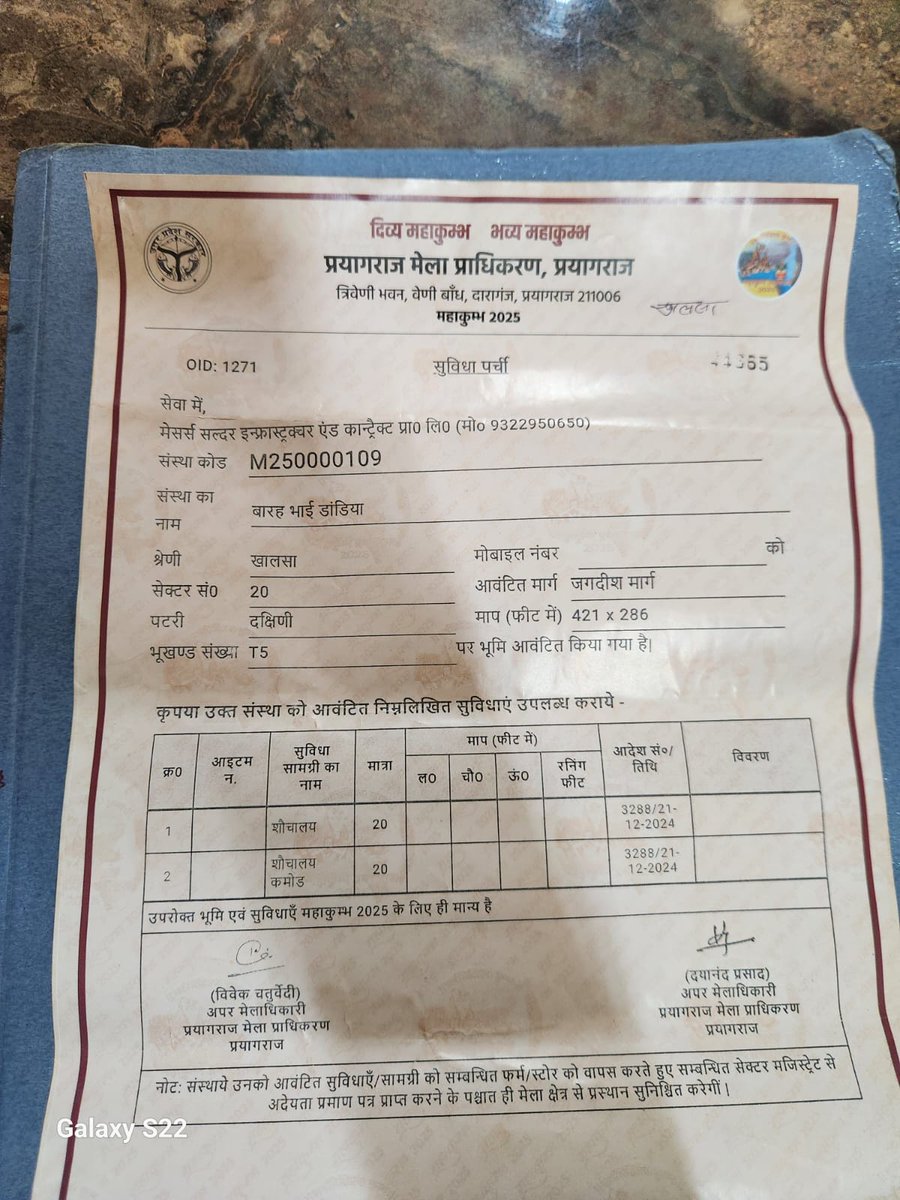 दिव्य महाकुम्भ भव्य महाकुम्भ
उत्तर प्रदेश सरकार
प्रयागराज मेला प्राधिकरण, प्रयागराज
त्रिवेणी भवन, वेणी बाँध, दारागंज, प्रयागराज 211006
महाकुम्भ 2025
OID: 1271 सुविधा पर्ची
सेवा में,
मेसर्स सल्दर इन्फ्रास्ट्रक्चर एंड कान्ट्रैक्ट प्रा0 लि0 (मो० 9322950650)
संस्था कोड M250000109
संस्था का नाम बारह भाई डांडिया
श्रेणी खालसा मोबाइल नंबर को
सेक्टर सं0 20 आवंटित मार्ग जगदीश मार्ग
पटरी दक्षिणी माप (फीट में) 421 x 286
भूखण्ड संख्या T5 पर भूमि आवंटित किया गया है।
कृपया उक्त संस्था को आवंटित निम्नलिखित सुविधाएं उपलब्ध कराये -
क्र0 आइटम न. सुविधा सामग्री का नाम मात्रा माप (फीट में) ल0 चौ0 ऊं0 रनिंग फीट आदेश सं०/ तिथि विवरण
1 शौचालय 20 3288/21-12-2024
2 शौचालय कमोड 20 3288/21-12-2024
उपरोक्त भूमि एवं सुविधाएँ महाकुम्भ 2025 के लिए ही मान्य है
(विवेक चतुर्वेदी) (दयानंद प्रसाद)
अपर मेलाधिकारी अपर मेलाधिकारी
प्रयागराज मेला प्राधिकरण प्रयागराज मेला प्राधिकरण
प्रयागराज प्रयागराज
नोट: संस्थाये उनको आवंटित सुविधाएँ/सामग्री को सम्बन्धित फर्म/स्टोर को वापस करते हुए सम्बन्धित सेक्टर मजिस्ट्रेट से
अदेयता प्रमाण पत्र प्राप्त करने के पश्चात ही मेला क्षेत्र से प्रस्थान सुनिश्चित करेगीं |
Galaxy S22